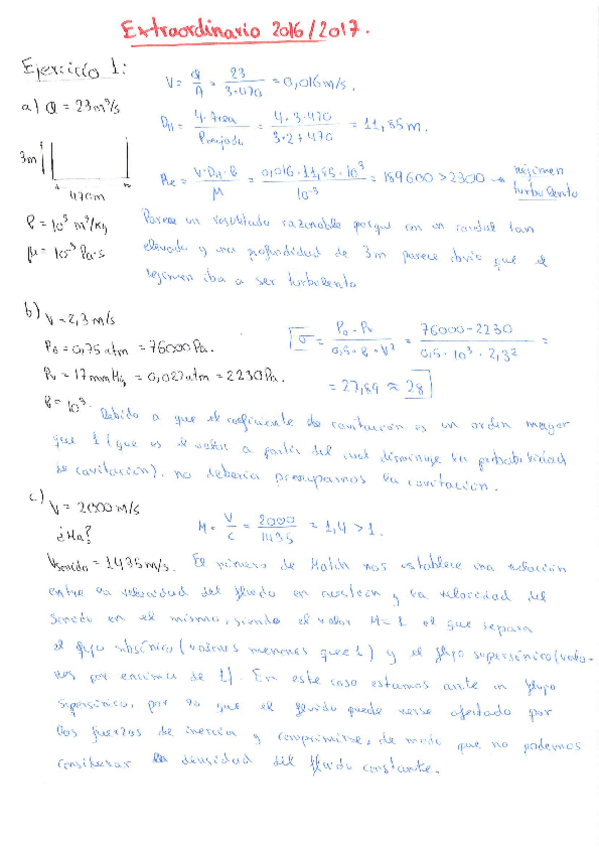 Extraordinario 2016/2017.
Ejercicio 1:
a) Q = 23 m³/s
3m
470m
ρ = 10³ m³/kg
μ = 10⁻³ Pa·s
V = Q/A = 23/3·470 = 0,016 m/s.
D_H = 4·Area/P mojado = 4·3·470/3·2+470 = 11,85 m.
Re = V·D_H·ρ/μ = 0,016·11,85·10³/10⁻³ = 189600 > 2300 → régimen turbulento
Parece un resultado razonable porque con un caudal tan
elevado y una profundidad de 3m parece obvio que el
régimen iba a ser turbulento
b) V = 2,3 m/s
P₀ = 0,75 atm = 76000 Pa.
Pv = 17 mmHg = 0,022 atm = 2230 Pa.
ρ = 10³.
σ = P₀ - Pv/0,5·ρ·V² = 76000-2230/0,5·10³·2,3² =
= 27,89 ≈ 28
Debido a que el coeficiente de cavitación es un orden mayor
que 1 (que es el valor a partir del cual disminuye la probabilidad
de cavitación), no debería preocuparnos la cavitación.
c) V = 2000 m/s
¿Ma?
Vsonido = 1435 m/s.
M = V/c = 2000/1435 = 1,4 > 1.
El número de Match nos establece una relación
entre la velocidad del fluido en cuestión y la velocidad del
sonido en el mismo, siendo el valor M=1 el que separa
el flujo subsónico (valores menores que 1) y el flujo supersónico (valo-
res por encima de 1). En este caso estamos ante un flujo
supersónico, por lo que el fluido puede verse afectado por
las fuerzas de inercia y comprimirse, de modo que no podemos
considerar la densidad del fluido constante.